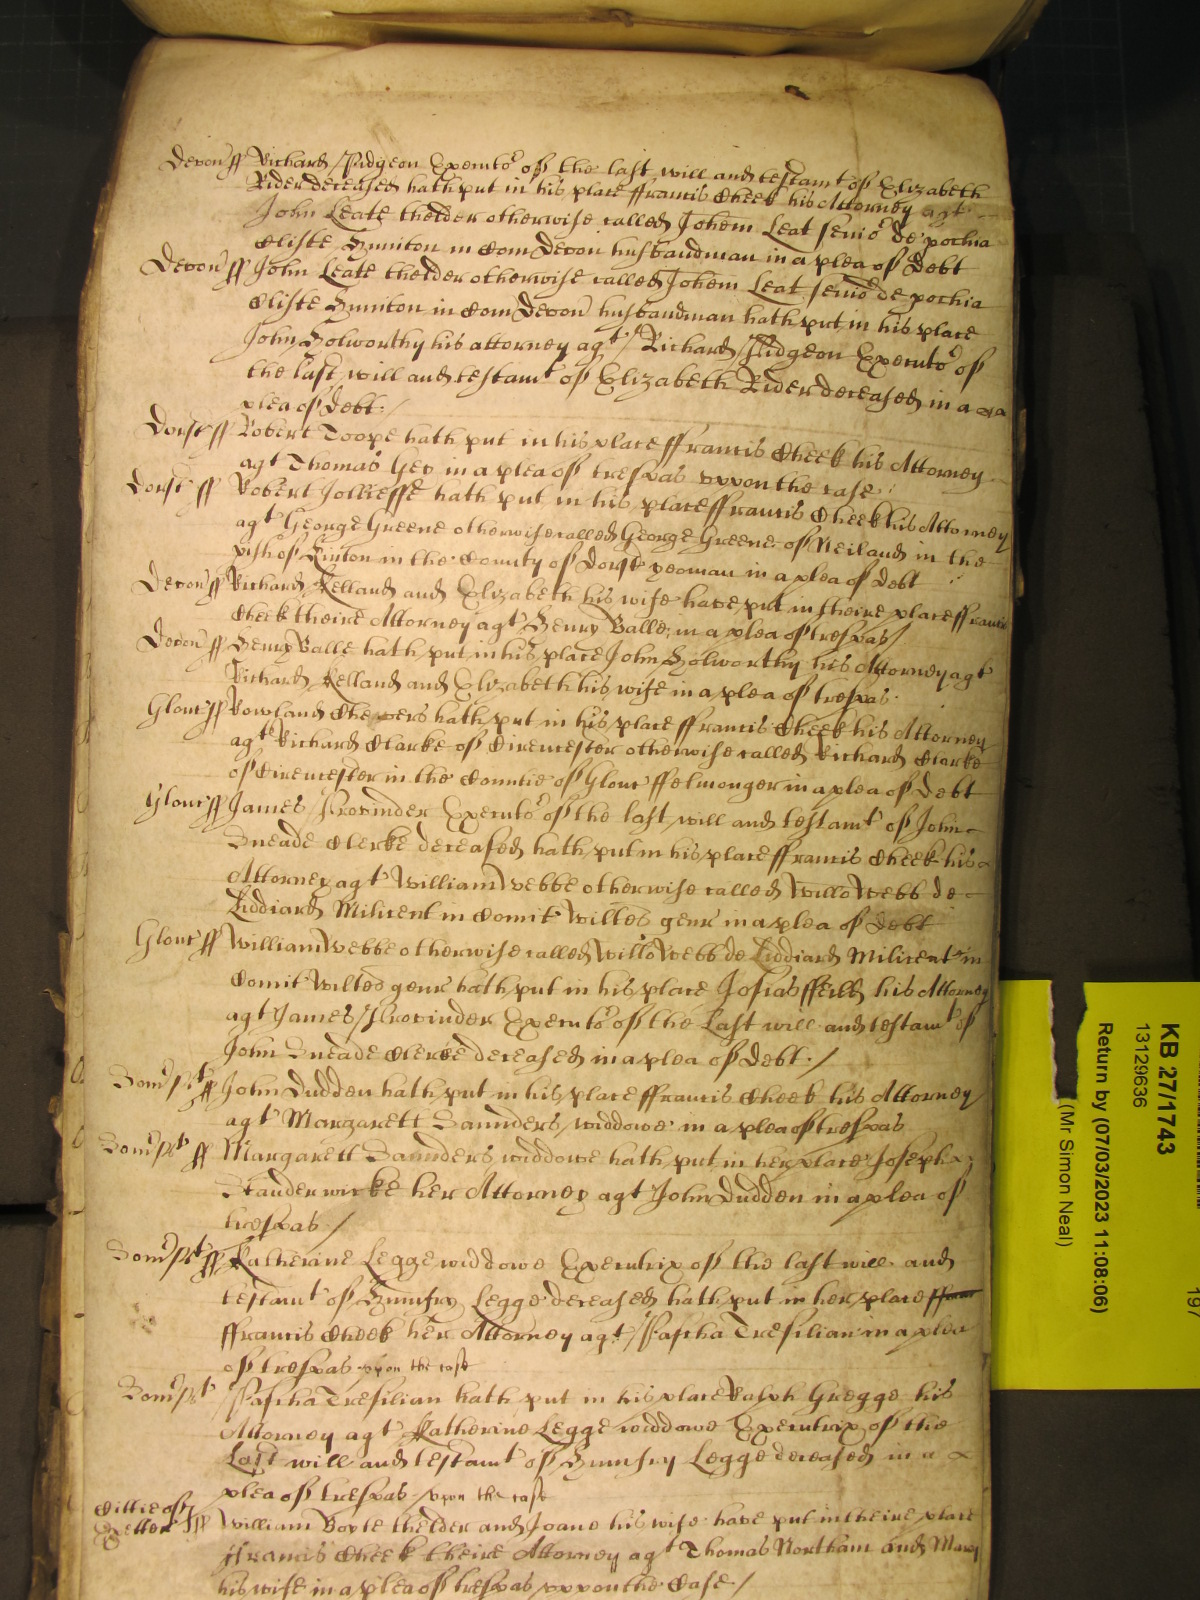 Devon ss Richard Pidgeon Executor of the last will and testamt of Elizabeth
Rider deceased hath put in his place ffrancis Cheek his Attorney agt
John Leate thelder otherwise called Johem Leat senio de pochia
Cliste Huniton in Com Devon husbandman in a plea of Debt
Devon ss John Leate thelder otherwise called Johem Leat senio de pochia
Cliste Huniton in Com Devon husbandman hath put in his place
John Holworthy his attorney agt Richard Pidgeon Executor of
the last will and testamt of Elizabeth Rider deceased in a
plea of Debt./
Dorst ss Robert Toope hath put in his place ffrancis Cheek his Attorney
agt Thomas in a plea of trespas vppon the case
Dorst ss Robert Jollieffe hath put in his place ffrancis Cheek his Attorney
agt George Greene otherwise called George Greene of Neiland in the
pish of in the County of Dorst yeoman in a plea of Debt
Devon ss Richard Kelland and Elizabeth his wife have put in theire place ffrancis
Cheek theire Attorney agt Henry Balle in a plea of trespas/
Devon ss Henry Balle hath put in his place John Holworthy his Attorney agt
Richard Kelland and Elizabeth his wife in a plea of trespas
Glouc ss Rowland hath put in his place ffrancis Cheek his Attorney
agt Richard Clarke of Cirencester otherwise called Richard Clarke
of Cirencester in the Countie of Glouc ffelmonger in a plea of Debt
Glouc ss James Provinder Executo of the last will and testamt of John
Sneade Clerke deceased hath put in his place ffrancis Cheek his
Attorney agt William Webbe otherwise called Willo Webb de
Liddiard Milicent in Comit Wiltes gene in a plea of Debt
Glouc ss William Webbe otherwise called Willo Webb de Liddiard Milicent in
Comit Wiltes gene hath put in his place Josias ffeild his Attorney
agt James Provinder Executo of the Last will and testamt of
John Sneade Clerke deceased in a plea of Debt./
Somst ss John Dudden hath put in his place ffrancis Cheek his Attorney
agt Margarett Saunders widdowe in a plea of trespas
Somst ss Margarett Saunders widdowe hath put in her place Joseph
Standerwicke her Attorney agt John Dudden in a plea of
trespas./
Somst ss Katherine Legge widdowe Executrix of the last will and
testamt of Humfry Legge deceased hath put in her place
ffrancis Cheek her Attorney agt Pascha Tresilian in a plea
of trespas vpon the case
Somst Pascha Tresilian hath put in his place Ralph Gregge his
Attorney agt Katherine Legge widdowe Executrix of the
Last will and testamt of Humfry Legge deceased in a
plea of trespas vpon the case
Cittie of
Exetter ss William Boyle thelder and Joane his wife have put in theire place
ffrancis Cheek theire Attorney agt Thomas Northam and Mary
his wife in a plea of trespas vppon the Case/
KB 27/1743
13129636
Return by (07/03/2023 11:08:06)
(Mr Simon Neal)